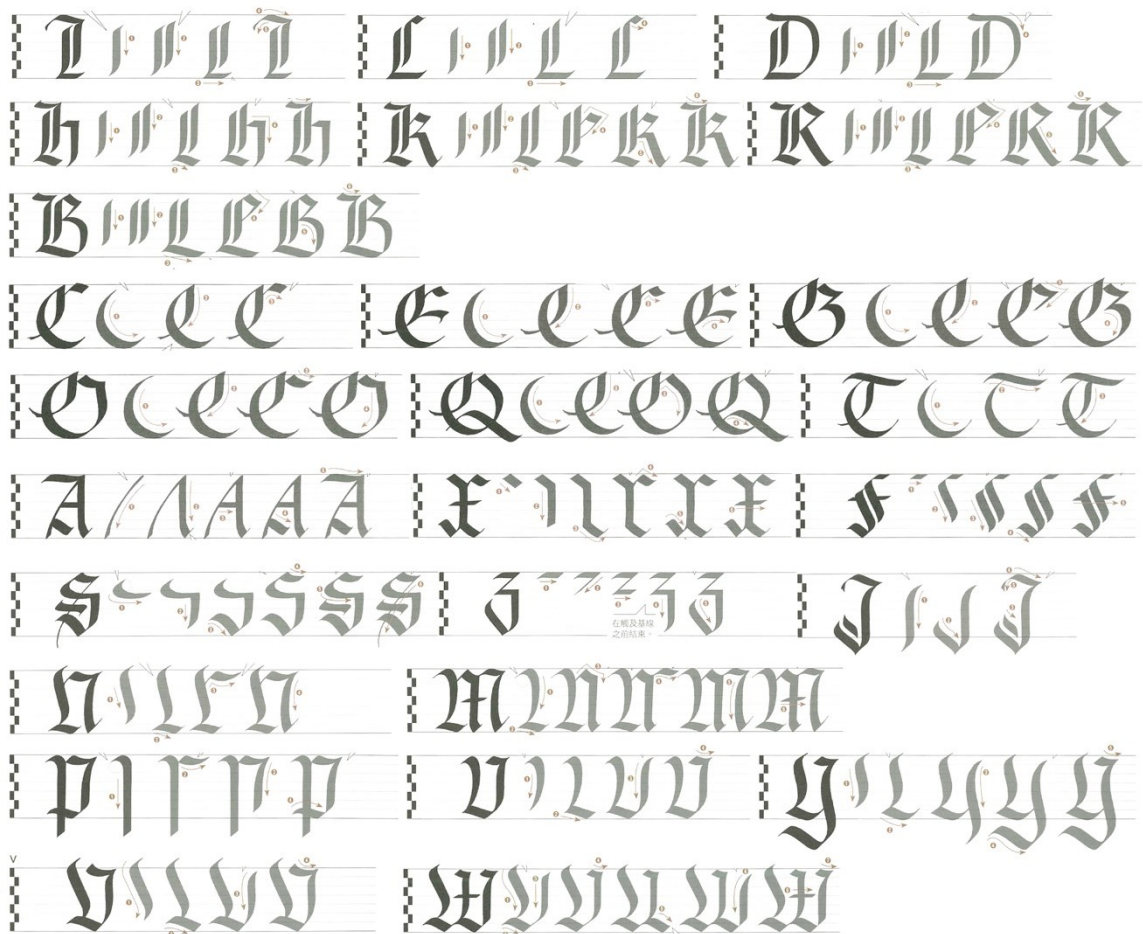 I L D
H K R
B
C E G
O Q T
A X F
S Z J
在觸及基線
之前結束。
N M
P U Y
V
V W